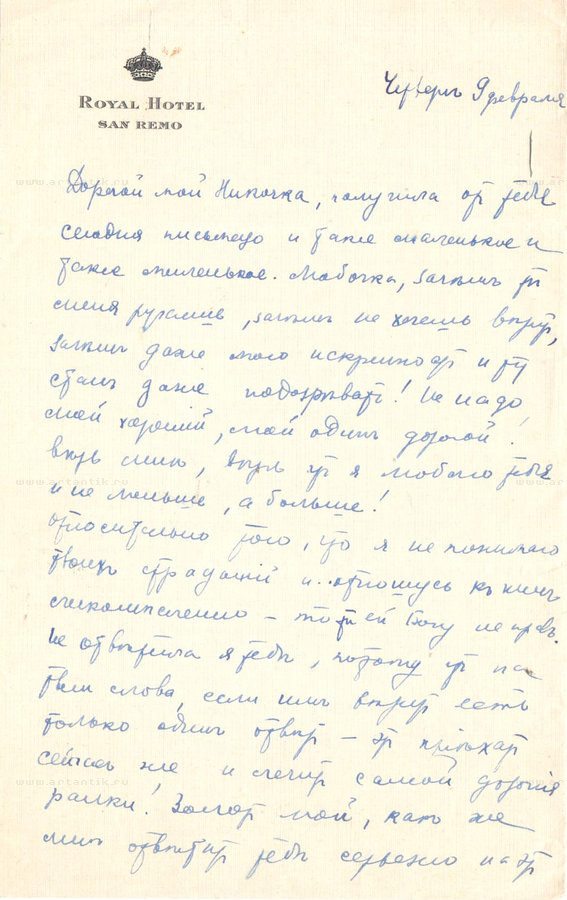 ROYAL HOTEL
SAN REMO
Четвергъ 9 февраля
Дорогой мой Никочка, получила от тебя
сегодня письмецо и такое маленькое и
такое миленькое. Любочка, зачѣмъ ты
меня ругаешь, зачѣмъ не хочешь вѣрить,
зачѣмъ даже мою искренность и ту
сталъ даже подозрѣвать! Не надо,
мой хорошій, мой одинъ дорогой!
вѣрь мнѣ, вѣрь что я люблю тебя
и не меньше, а больше!
относительно того, что я не понимаю
твоихъ страданій и отношусь къ нимъ
легкомысленно – то ей Богу не правъ.
Не отвѣтила я тебѣ, потому что на
твои слова, если имъ вѣрить есть
только одинъ отвѣтъ – это пріѣхать
сейчасъ же и лечить самой дорогія
ранки! Золото мой, какъ же
мнѣ отвѣтить тебѣ серьезно на это
www.artantik.ru